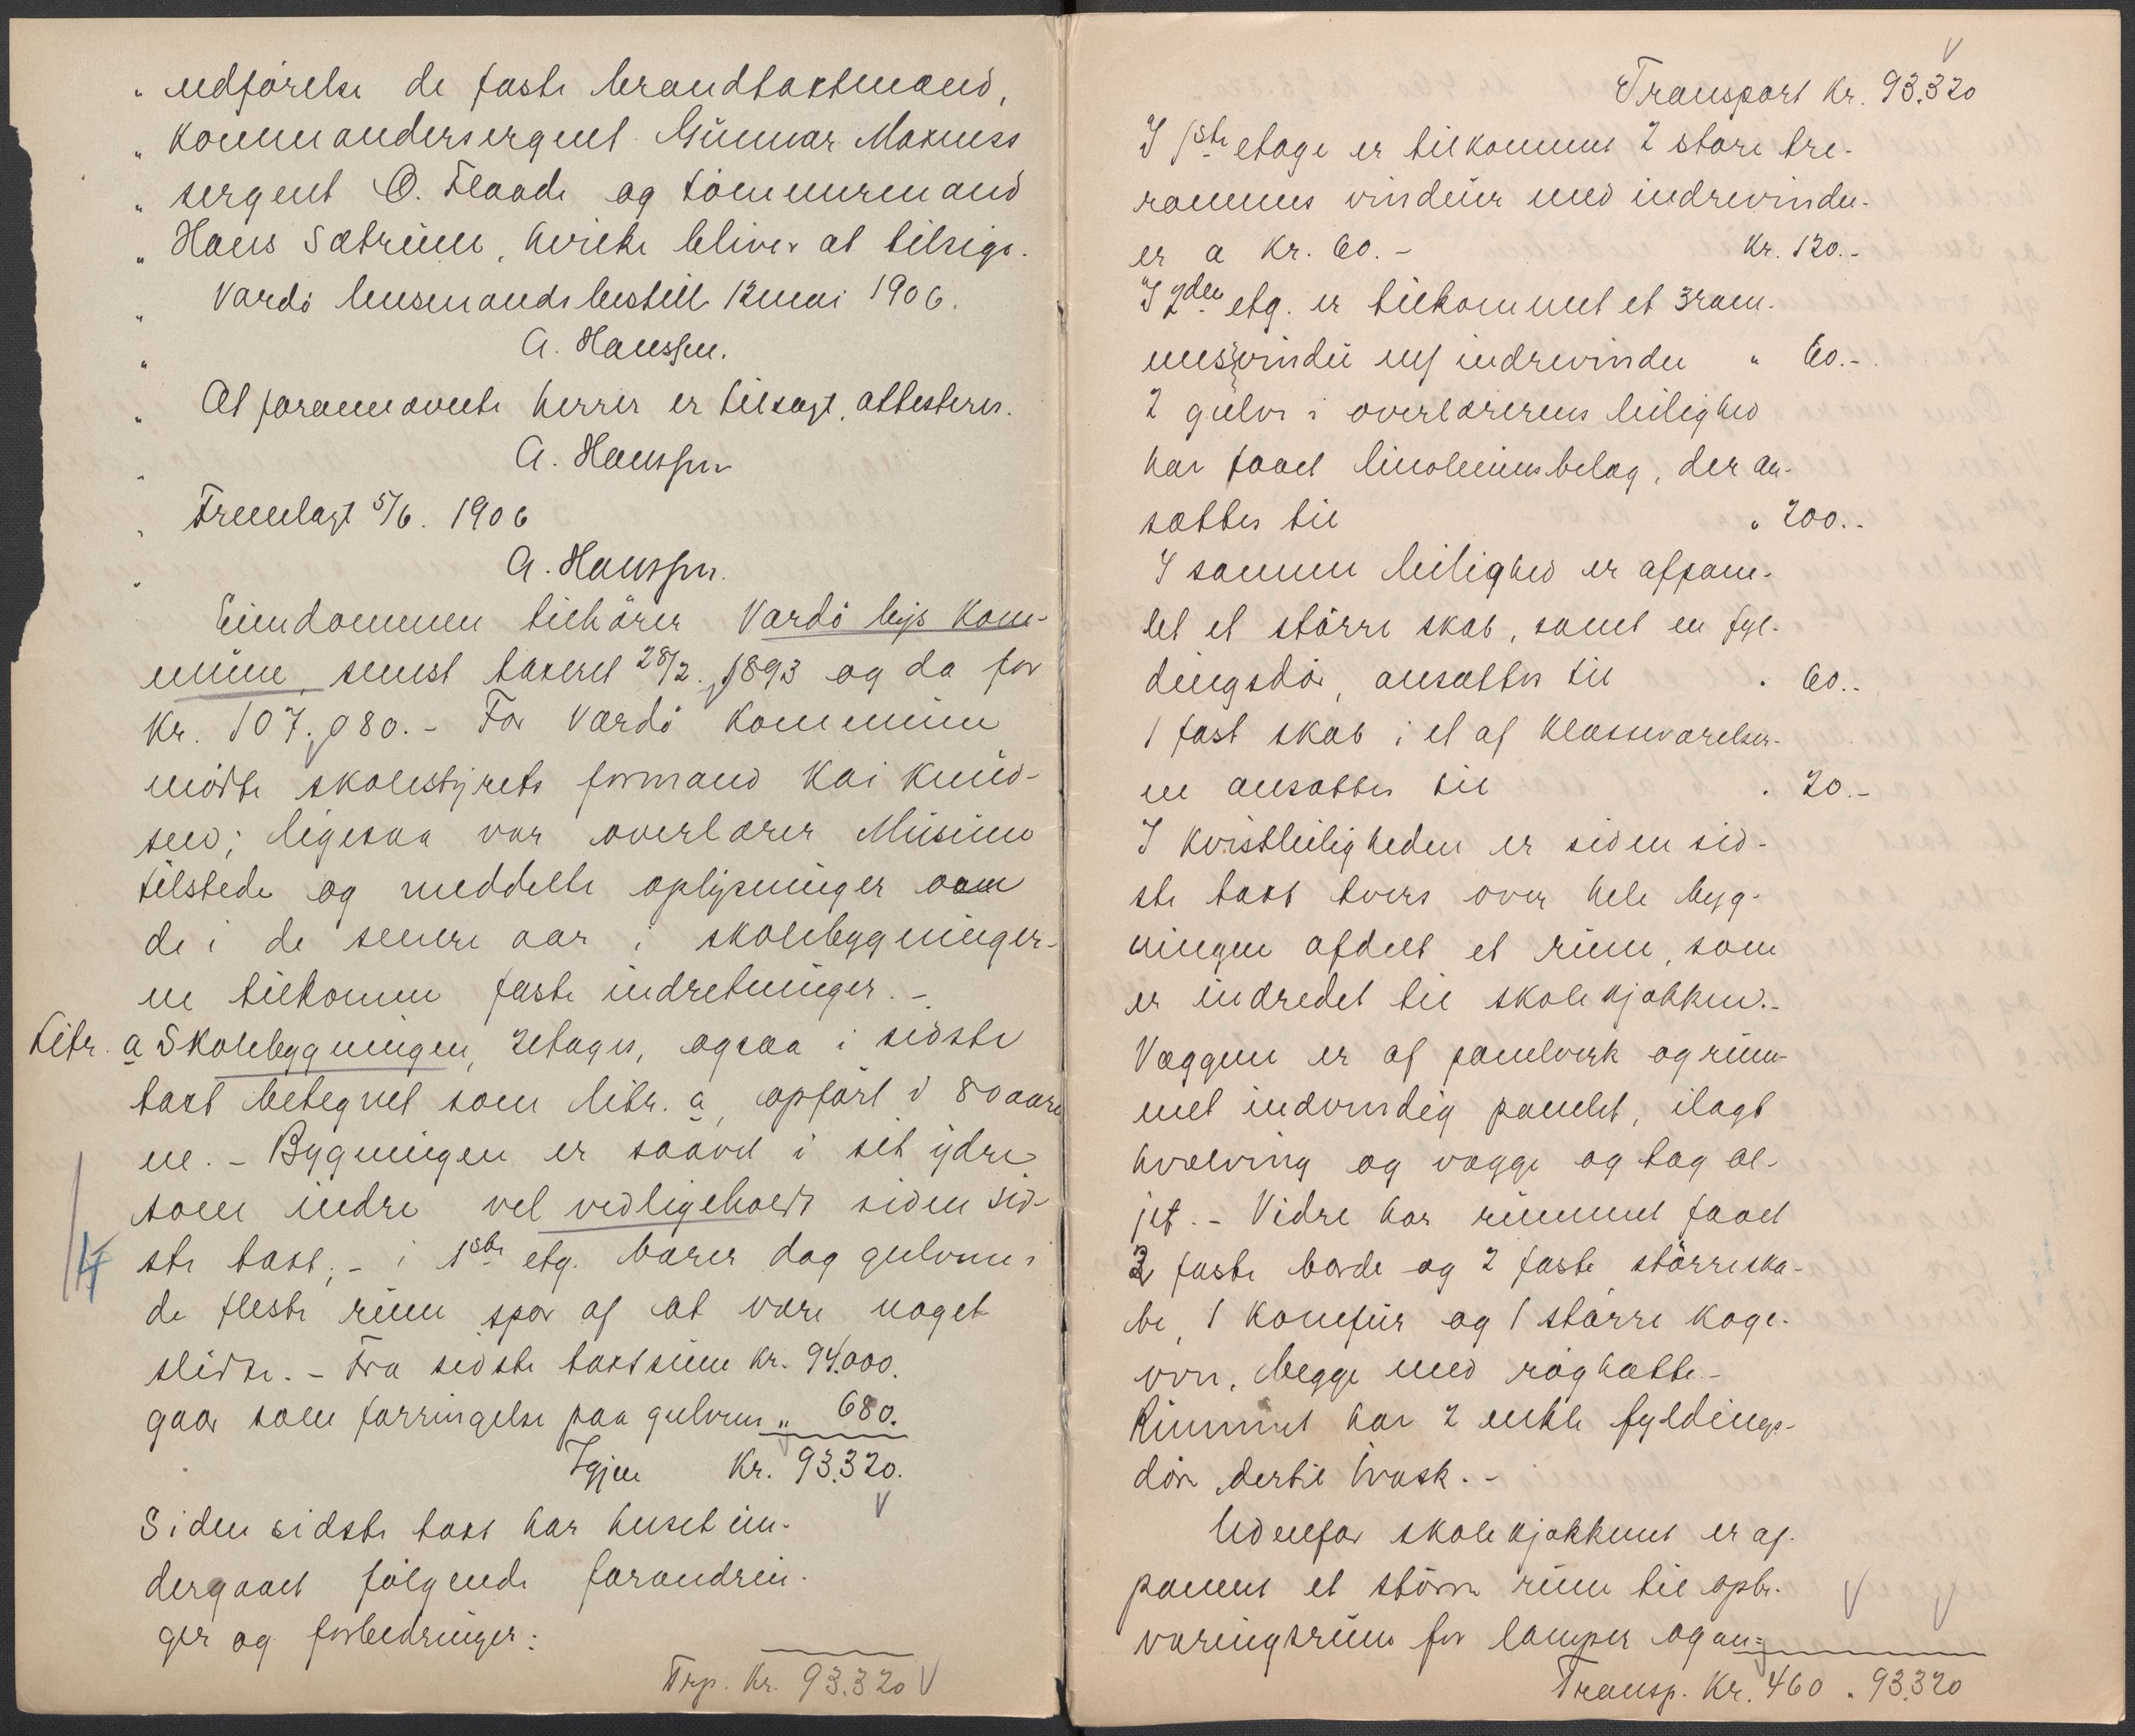 „ udförelse de faste brandtaxtmænd,
„ kommandersergent Gunnar Maxness
„ sergent O. Flaade og tömmermand
„ Hans Sætrum, hvilke bliver at tilsige.
„ Vardö lensmandsbestill. 12 mai 1906.
„ A. Hanssen.
„ At forannævnte herrer er tilsagt, attesteres.
„ A. Hanssen
„ Fremlagt 5/6. 1906
„ A. Hanssen.
Eiendommen tilhörer Vardö bys kom-
mune, senest taxeret 28/2. 1893 og da for
Kr. 107.080.- For Vardö kommune
mödte skolestyrets formand Kai Knud-
sen; ligesaa var overlærer Musum
tilstede og meddelte oplysninger om
de i de senere aar i skolebygninger-
ne tilkomne faste indretninger.-
Litr. a Skolebygningen, 2etages, ogsaa i sidste
taxt betegnet som litr. a, opfört i 80aare
ne.- Bygningen er saavel i sit ydre
som indre vel vedligeholdt siden sid-
ste taxt;- i 1ste etg. bærer dog gulvene i
de fleste rum spor af at være noget
slidte.- Fra sidste taxtsum Kr. 94.000.
gaar som forringelse paa gulvene „ 680.
Igjen Kr. 93.320.
Siden sidste taxt har huset un-
dergaaet fölgende forandrin-
ger og forbedringer:
Trp. Kr. 93.320
Transport Kr. 93.320
I 1ste etage er tilkommet 2 store tre-
rammes vinduer med indrevindu-
er a Kr. 60.- Kr. 120.-
I 2den etg. er tilkommet et 3ram-
mes vindu m/ indrevindu „ 60.-
2 gulve i overlærerens leilighed
har faaet linoleumsbelæg, der an-
sættes til „ 200.-
I samme leilighed er afpane-
let et större skab, samt en fyl-
dingsdör, ansættes til „ 60.-
1 fast skab i et af klasseværelser-
ne ansættes til „ 20.-
I kvistleiligheden er siden sid-
ste taxt tvers over hele byg-
ningen afdelt et rum, som
er indredet til skolekjökken.-
Væggene er af panelverk og rum-
met indvendig panelet, ilagt
hvælving og vægge og tag ol-
jet.- Videre har rummet faaet
3 faste borde og 2 faste större ska-
be, 1 komfur og 1 större koge-
ovn, begge med röghætte.-
Rummet har 2 enkle fyldings-
döre, dertil vask.-
Udenfor skolekjökkenet er af-
panelet et större rum til opbe-
varingsrum for lamper og an-
Transp. Kr. 460 „ 93.320